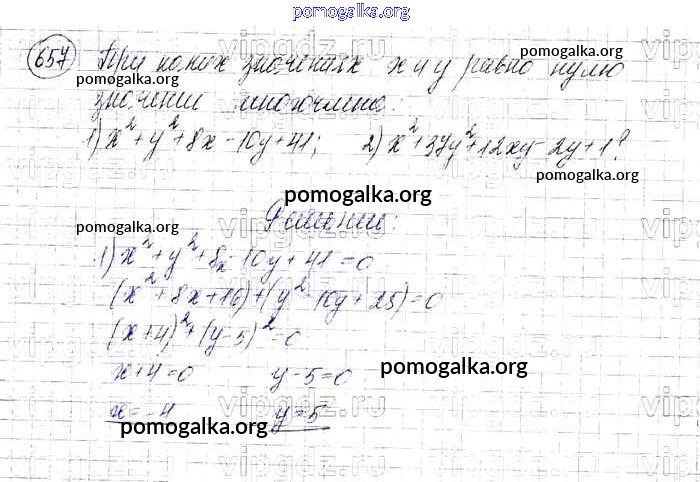 pomogalka.org
657 При каких значениях x и y равно нулю
pomogalka.org
значение многочлена:
1) x²+y²+8x-10y+41; 2) x²+37y²+12xy-2y+1?
pomogalka.org
pomogalka.org
pomogalka.org
Решение:
1) x²+y²+8x-10y+41=0
(x²+8x+16)+(y²-10y+25)=0
(x+4)²+(y-5)²=0
x+4=0 y-5=0
pomogalka.org
x=-4 y=5
pomogalka.org
vipgdz.ru